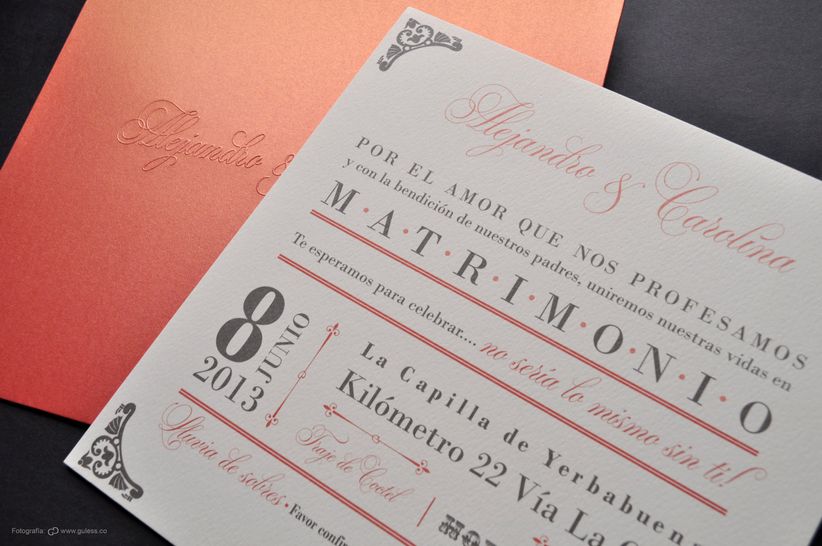 Alejandro &
Alejandro & Carolina
POR EL AMOR QUE NOS PROFESAMOS
y con la bendición de nuestros padres, uniremos nuestras vidas en
M·A·T·R·I·M·O·N·I·O
Te esperamos para celebrar.... no sería lo mismo sin ti!
8
JUNIO
2013
La Capilla de Yerbabuen
Kilómetro 22 Vía La
Traje de Coctel
Lluvia de sobres • Favor confir
Fotografía: www.guless.co